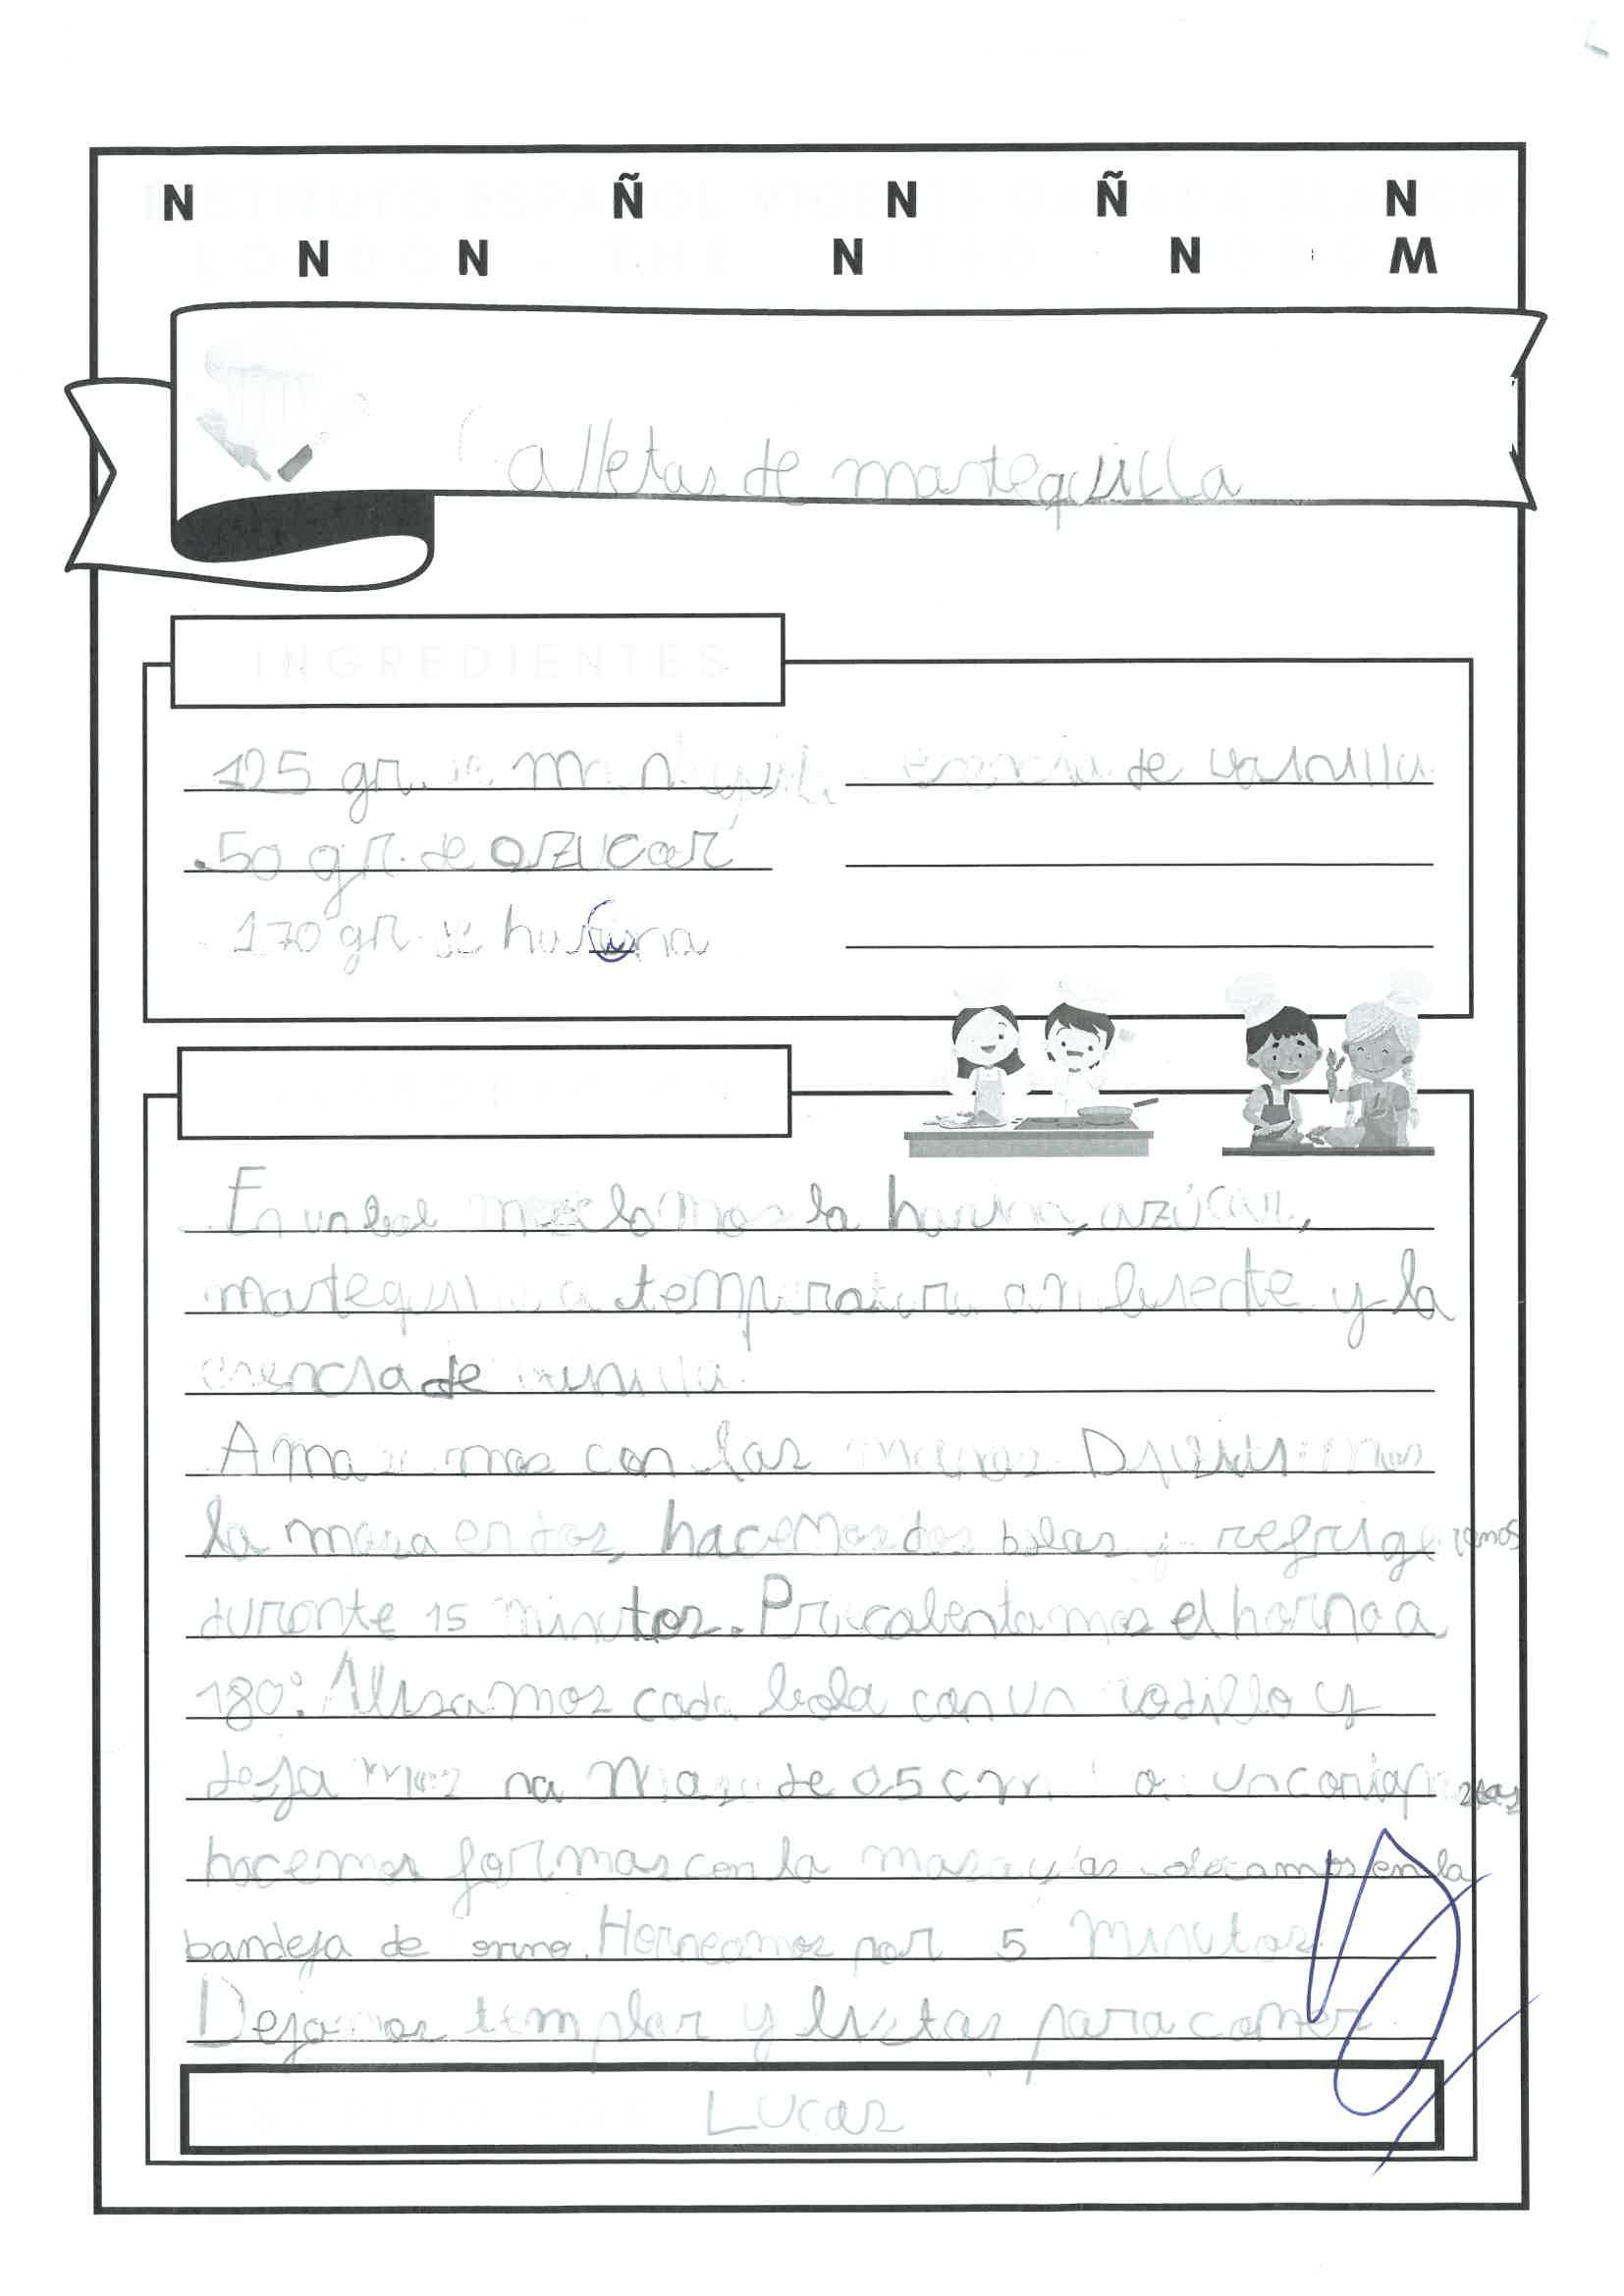 INSTITUTO ESPAÑOL VICENTE CAÑADA BLANCH
LONDON - THE UNITED KINGDOM
Galletas de mantequilla
INGREDIENTES
125 gr. de mantequilla
esencia de vainilla
.50 gr. de azucar
170 gr. de harina
En un bol mezclamos la harina, azúcar,
mantequilla a temperatura ambiente y la
esencia de vainilla.
Amasamos con las manos. Dividimos
la masa en dos, hacemos dos bolas y refrigeramos
durante 15 minutos. Precalentamos el horno a
180º. Alisamos cada bola con un rodillo y
dejamos na masa de 0,5 cm
hacemos formas con la masa y las colocamos en la
bandeja de orno. Horneamos por 5 minutos
Dejamos templar y listas para comer.
Lucas